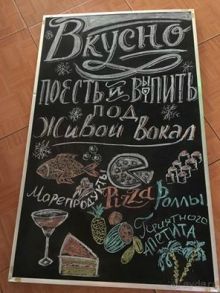 Вкусно
поесть и выпить
под
Живой вокал
Морепродукты
Pizza
Роллы
Приятного
аппетита